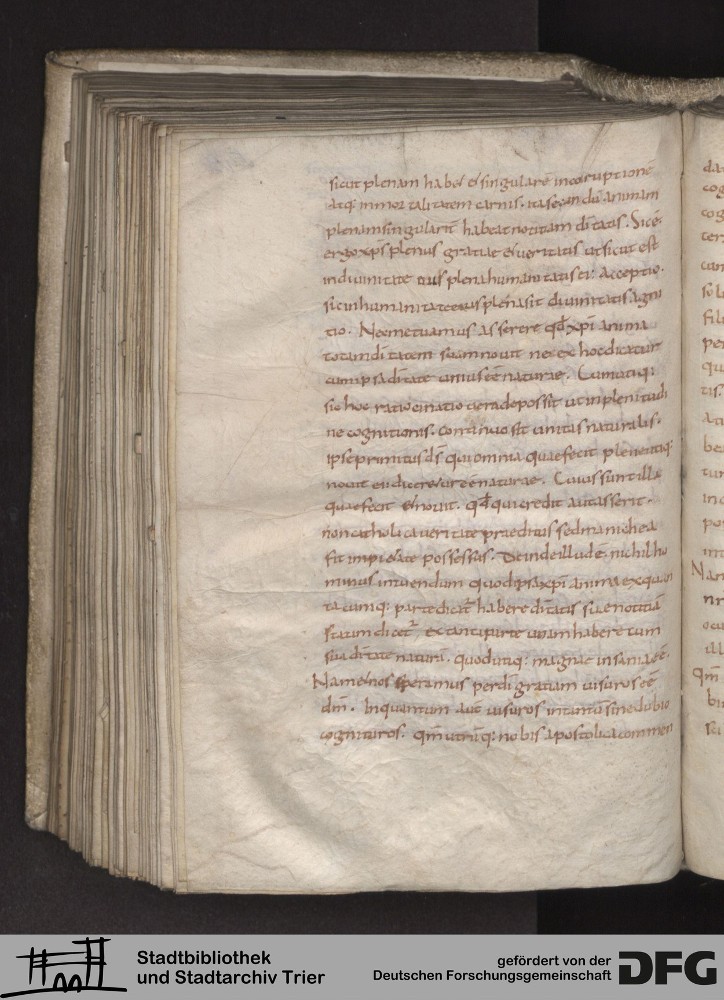 sicut plenam habet et singularē incorruptionē
atq: inmortalitatem carnis. ita secundū animam
plenam singularit̄ habeat notitiam diītatis. Sic ē
ergo xp̄s plenus gratiae et ueritatis ut sicut est
in diuinitate eius plena humanitatis acceptio.
sic in humanitate eius plena sit diuinitatis agni
tio. Nec metuamus asserere qđ xp̄i anima
totam diītatem suam nouit ne ex hoc dicatur
cum ipsa diītate unius eē naturae. Cum atiq:
sic hoc ratiocinatio uera deposcit ut in plenitudi
ne cognitionis.
ipse primitus dš qui omnia quae fecit plene utiq:
nouit naturae. Cuius sunt illa
quae fecit et nouit. qđ qui credit aut asserit.
non catholica ueritate praeditus sed manichea
fit impietate possessus. Deinde illud ē nichilho
minus intuendum quod ipsa xp̄i anima ex quan
tacumq: parte dicat̄ habere diītatis suae notitiā
statim dicet̄ ex tanta parte unam habere cum
sua diītate naturā. quod utiq: magnae insaniae ē.
Nam et nos speramus per dī gratiam uisuros eē
dm̄. In quantum aut̄ uisuros in tantū sine dubio
cognituros. qm̄ utrūq: nobis apostolica commen
da
cog
cog
cer
can
so le
fili
per
qu
tis.
ati
be
tur
in c
por
int
Nam
nr
ocu
ill
qm̄
bu
sci
Stadtbibliothek
und Stadtarchiv Trier
gefördert von der
Deutschen Forschungsgemeinschaft
DFG